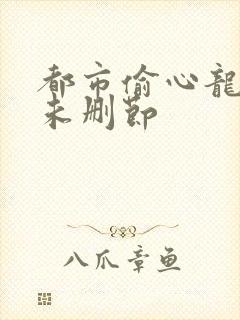 都市偷心龍
未删節
八爪章鱼